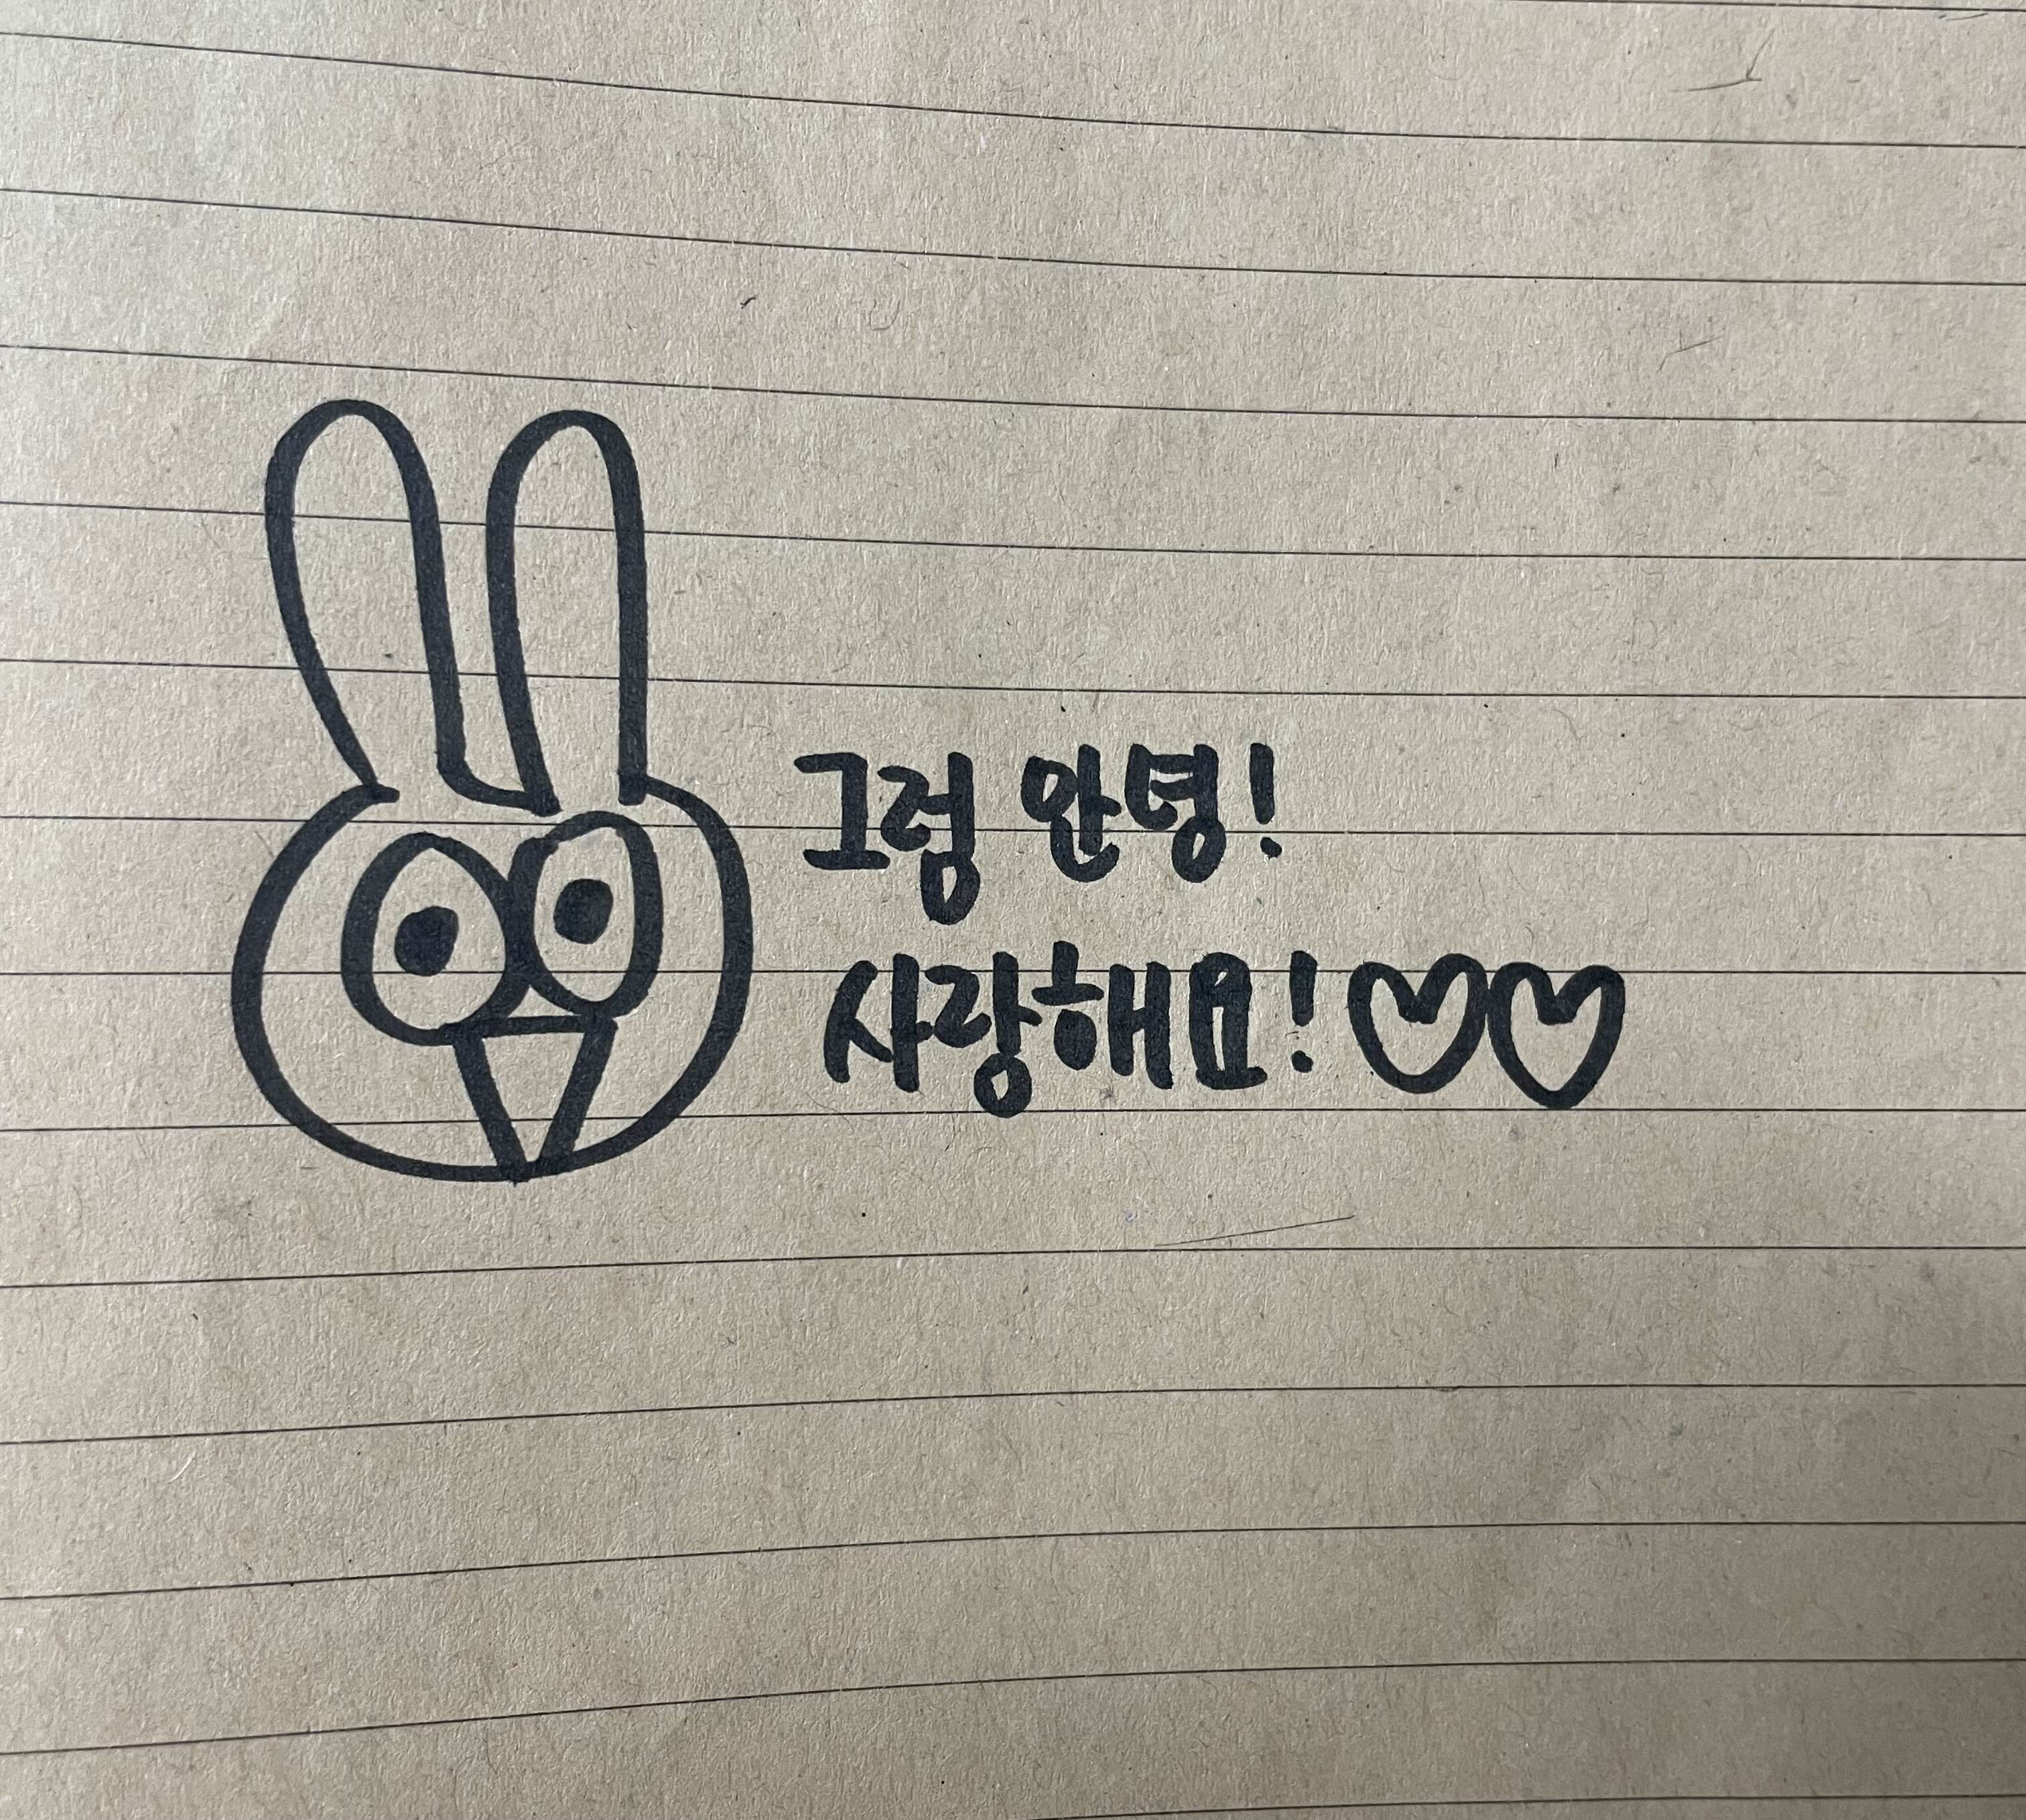 그럼 안녕!
사랑해요!♡♡